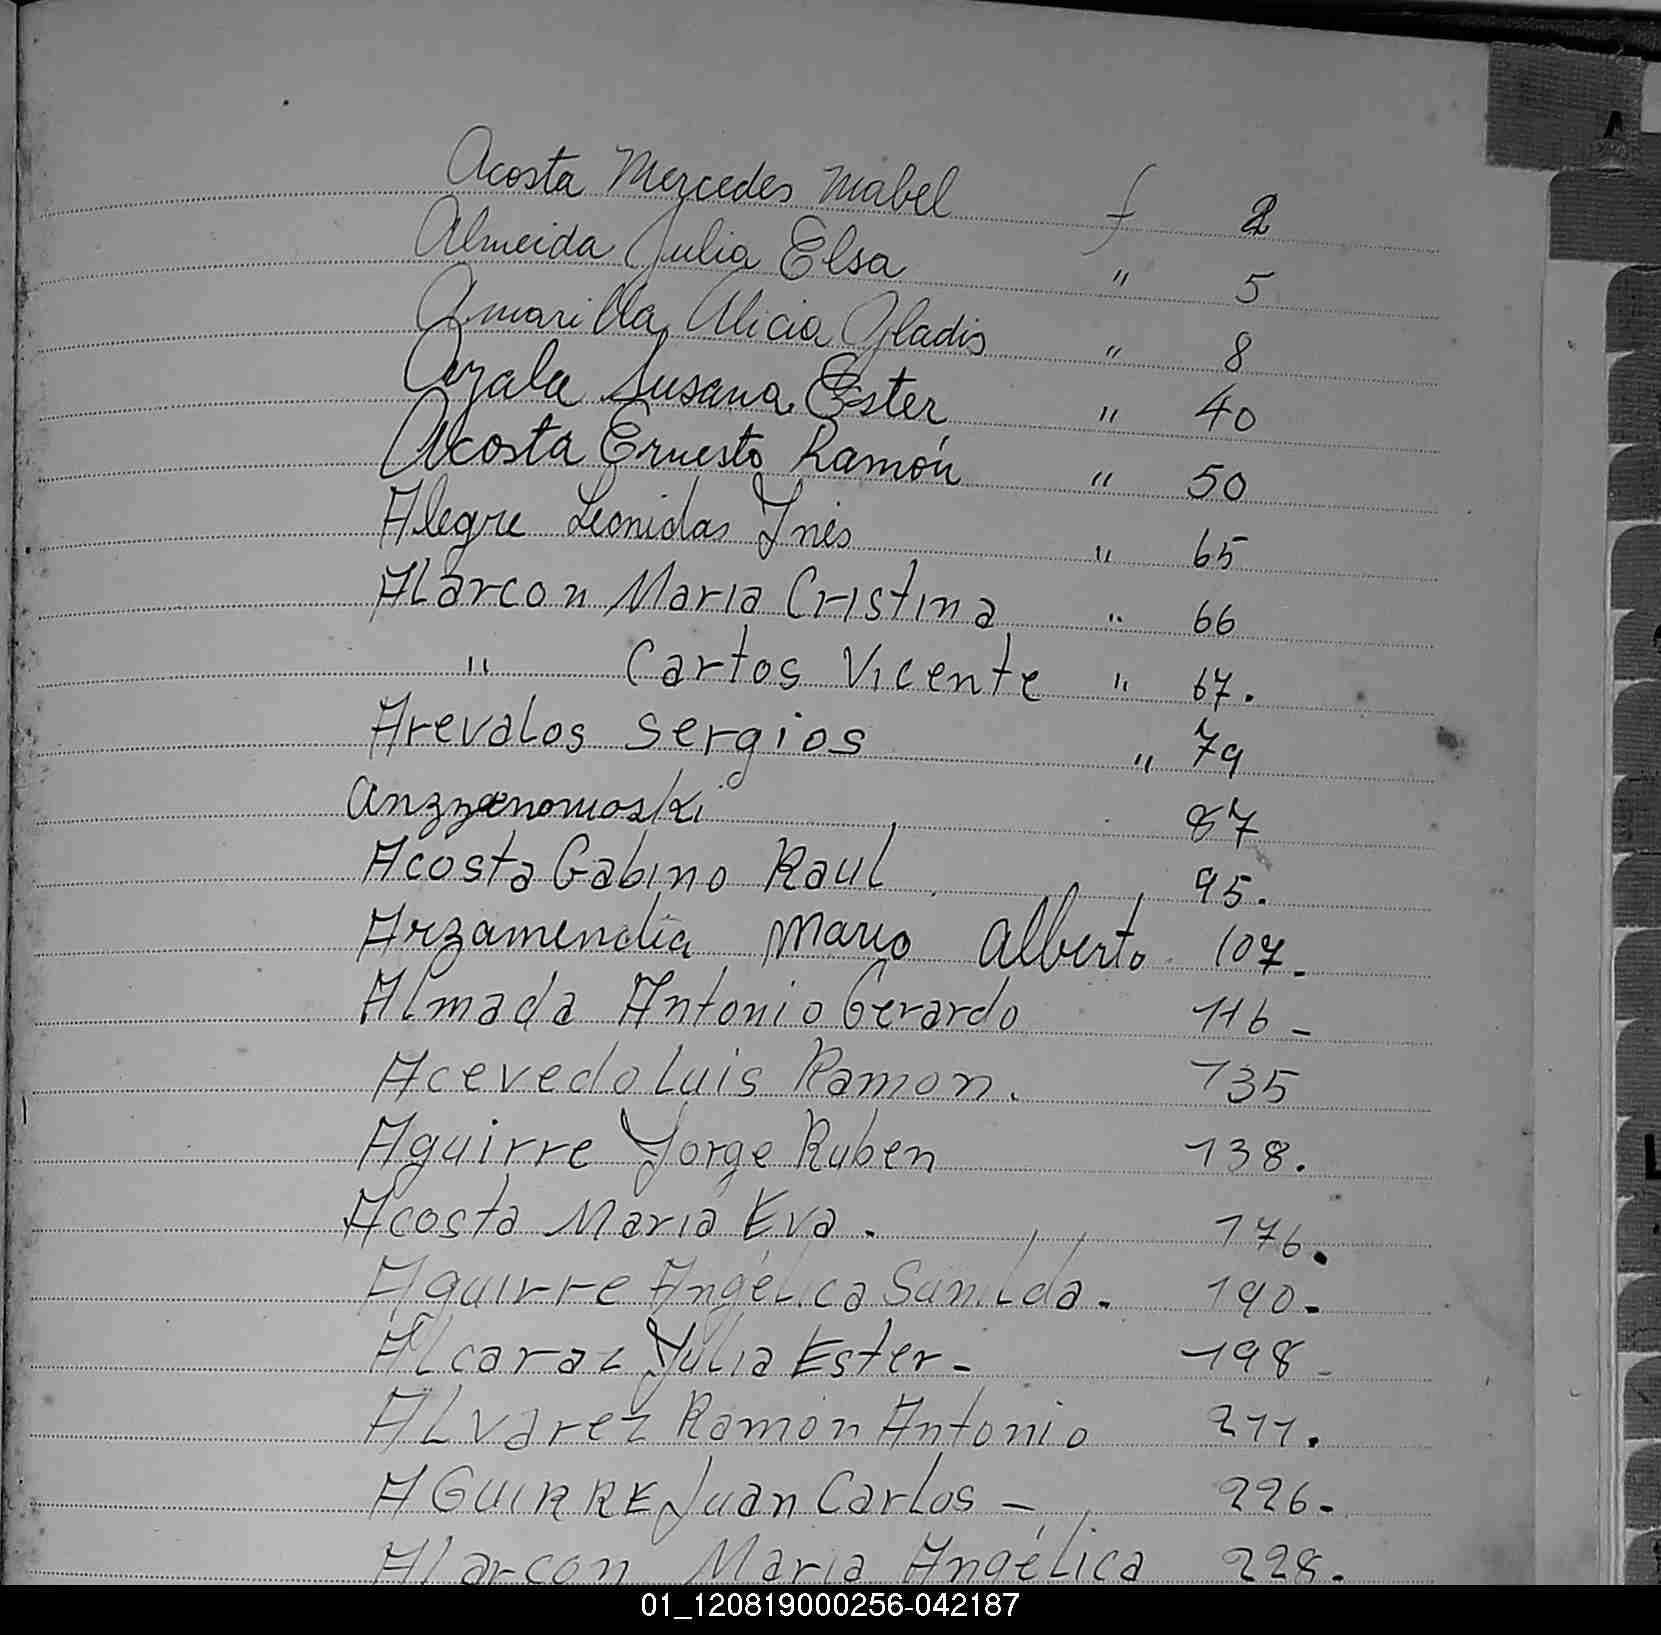 A
Acosta Mercedes Mabel f 2
Almeida Julia Elsa " 5
Amarilla Alicia Gladis " 8
Ayala Susana Ester " 40
Acosta Ernesto Ramón " 50
Alegre Leonidas Ynés " 65
Alarcon Maria Cristina " 66
" Carlos Vicente " 67.
Arevalos Sergios " 79
87
Acosta Gabino Raul 95.
Arzamendia Mario Alberto 107.
Almada Antonio Gerardo 116 -
Acevedo Luis Ramon. 135
Aguirre Jorge Ruben 138.
Acosta Maria Eva. 176.
Aguirre Angélica Sunilda. 190.
Alcaraz Julia Ester - 198 -
Alvarez Ramón Antonio 211.
AGUIRRE Juan Carlos - 226.
Alarcon Maria Angélica 228.
L
01_120819000256-042187